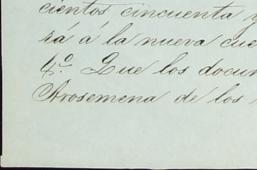 cientos cincuenta y
rá á la nueva cue
4º. Que los docum
Arosemena de los